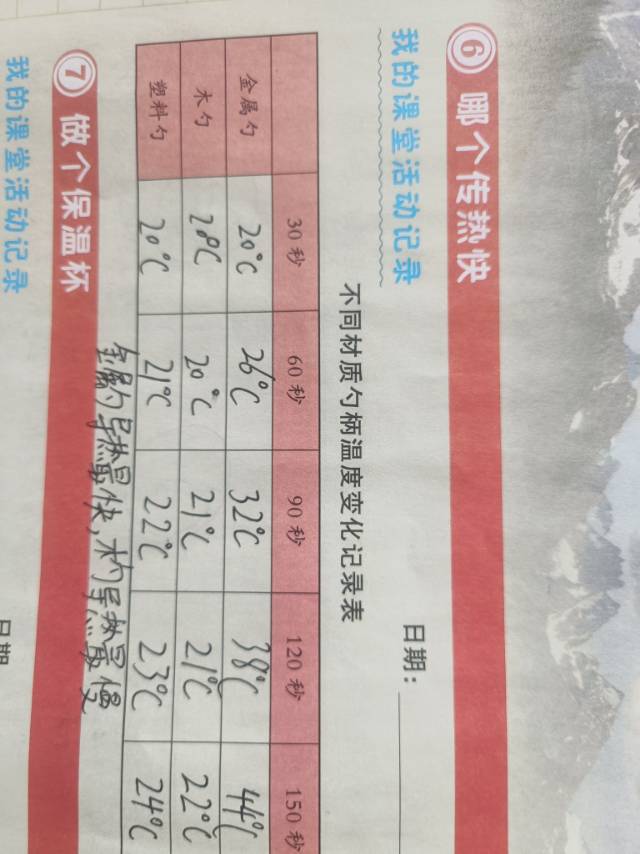 6 哪个传热快
我的课堂活动记录
日期：
不同材质勺柄温度变化记录表
30秒 60秒 90秒 120秒 150秒
金属勺 20℃ 26℃ 32℃ 38℃ 44℃
木勺 20℃ 20℃ 21℃ 21℃ 22℃
塑料勺 20℃ 21℃ 22℃ 23℃ 24℃
金属勺导热最快,木勺导热最慢
7 做个保温杯
我的课堂活动记录
日期